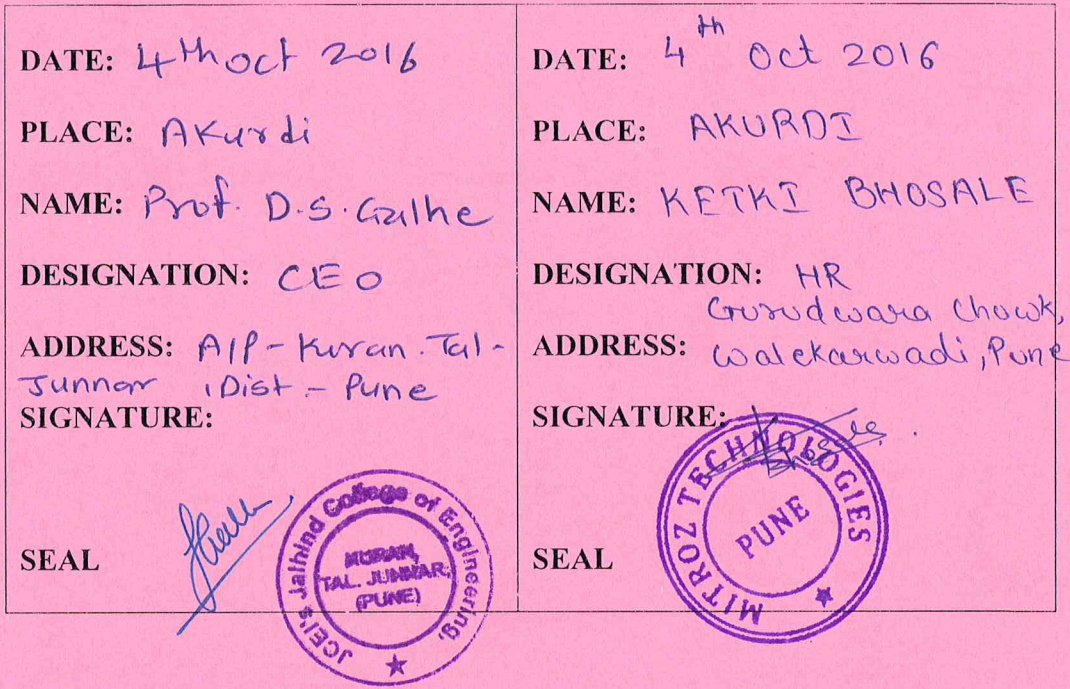 DATE: 4th oct 2016
PLACE: Akurdi
NAME: Prof. D.S. Galhe
DESIGNATION: CEO
ADDRESS: A/P - Kuran. Tal-
Junnar, Dist - Pune
SIGNATURE:
SEAL
JCEI's Jaihind College of Engineering,
KURAN,
TAL. JUNNAR,
(PUNE)
DATE: 4th Oct 2016
PLACE: AKURDI
NAME: KETKI BHOSALE
DESIGNATION: HR
Gurudwara Chowk,
ADDRESS: Walekarwadi, Pune
SIGNATURE:
SEAL
MITROZ TECHNOLOGIES
PUNE